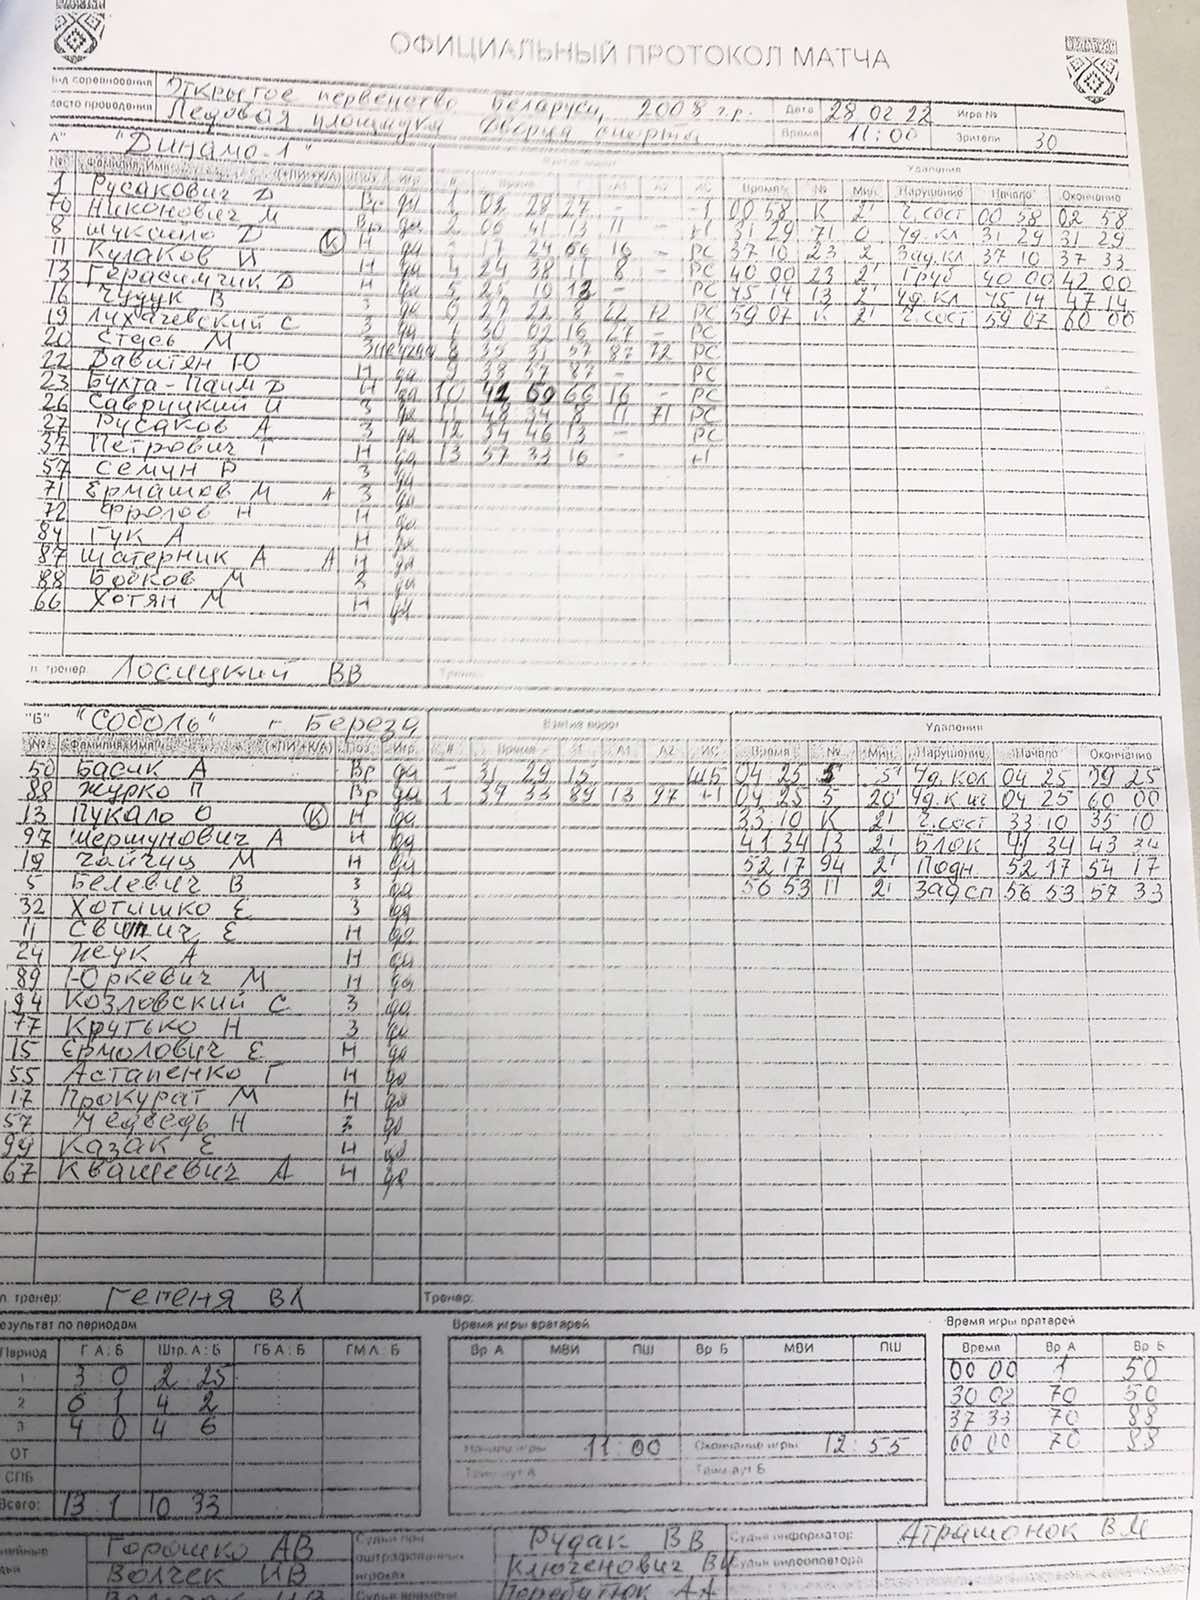 ОФИЦИАЛЬНЫЙ ПРОТОКОЛ МАТЧА
Вид соревнования Открытое первенство Беларуси, 2008 г.р. Дата 28 02 22 Игра №
место проведения Ледовая площадка Дворца спорта Время 11:00 Зрители 30
"А" "Динамо-1" Удаления
№ Фамилия, Имя Время № Мин. Нарушение Начало Окончание
1 Русакович Д Вр да 1 02 28 27 - - +1 00 58 К 2' Ч.сост 00 58 02 58
70 Никонович М Вр да 2 06 41 13 11 - +1 31 29 71 0 Уд.кл 31 29 31 29
8 Шуксило D К Н да - 17 24 66 16 - РС 37 10 23 2 Зад.кл 37 10 37 33
11 Кулаков И Н да 4 24 38 11 8 - РС 40 00 23 2' Груб 40 00 42 00
13 Герасимчик D Н да 5 13 - РС 45 14 13 2' Уд.кл 45 14 47 14
16 Чудук В З да РС 59 07 К 2' Ч.сост 59 07 60 00
19 Лихачевский С З да 7 30 02 16 27 - РС
20 Стась М З 8 35 31 57 87 72 РС
22 Давитян Ю Н да 9 38 57 87 - РС
23 Бухта-Паим Н да 10 66 16 - РС
26 Саврицкий И З да 11 48 34 8 11 71 РС
27 Русаков А З да 12 54 46 13 - РС
37 Петрович Г Н да 13 57 33 16 - +1
57 Семун Р З да
71 Ермашов М А З да
72 Фролов Н Н да
84 Гук А Н да
87 Шатерник А А Н да
88 Бобков М З да
66 Хотян М Н да
тренер: Лосицкий ВВ
"Б" "Соболь" г Береза Взятие ворот Удаления
№ Фамилия, Имя (+ПИ/+К/А) Поз Игр # Время Г А1 А2 ИС Время № Мин. Нарушение Начало Окончание
50 Басик А Вр да - 31 29 15 ШБ 04 25 5 5' Уд.кол 04 25 09 25
88 Журко П Вр да 1 39 33 89 13 97 +1 04 25 5 20' 04 25 60 00
13 Пукало О К Н да 33 10 К 2' Ч.сост 33 10 35 10
97 Шершунович А Н да 41 34 13 2' Блок 41 34 43 34
19 Чайчиц М Н да 52 17 94 2' Подн 52 17 54 17
5 Белевич В З да 56 53 11 2' 56 53 57 33
32 Хотишко Е З да
11 Свитич Е Н да
24 А Н да
89 Юркевич М Н да
94 Козловский С З да
77 Крутько Н З да
15 Ермолович Е Н да
55 Астапенко Г Н да
17 Прокурат М Н да
57 Медведь Н З да
99 Казак Е Н да
67 Квашевич А Н да
тренер: Гепеня ВЛ Тренер:
Результат по периодам Время игры вратарей Время игры вратарей
Период Г А : Б Штр. А : Б ГБ А : Б ГМ А : Б Вр А МВИ ПШ Вр Б МВИ ПШ Время Вр А Вр Б
1 3 0 2 25 00 00 1 50
2 6 1 4 2 30 02 70 50
3 4 0 4 6 37 33 70 88
ОТ Начало игры 11:00 Окончание игры 12:55 60 00 70 88
СПБ Тайм-аут А Тайм-аут Б
Всего: 13 1 10 33
Горошко АВ Судьи при оштрафованных игроках Рудак ВВ Судья информатор Атрашонок ВМ
Волчек ИВ Ключенович ВИ Судья видеоповтора